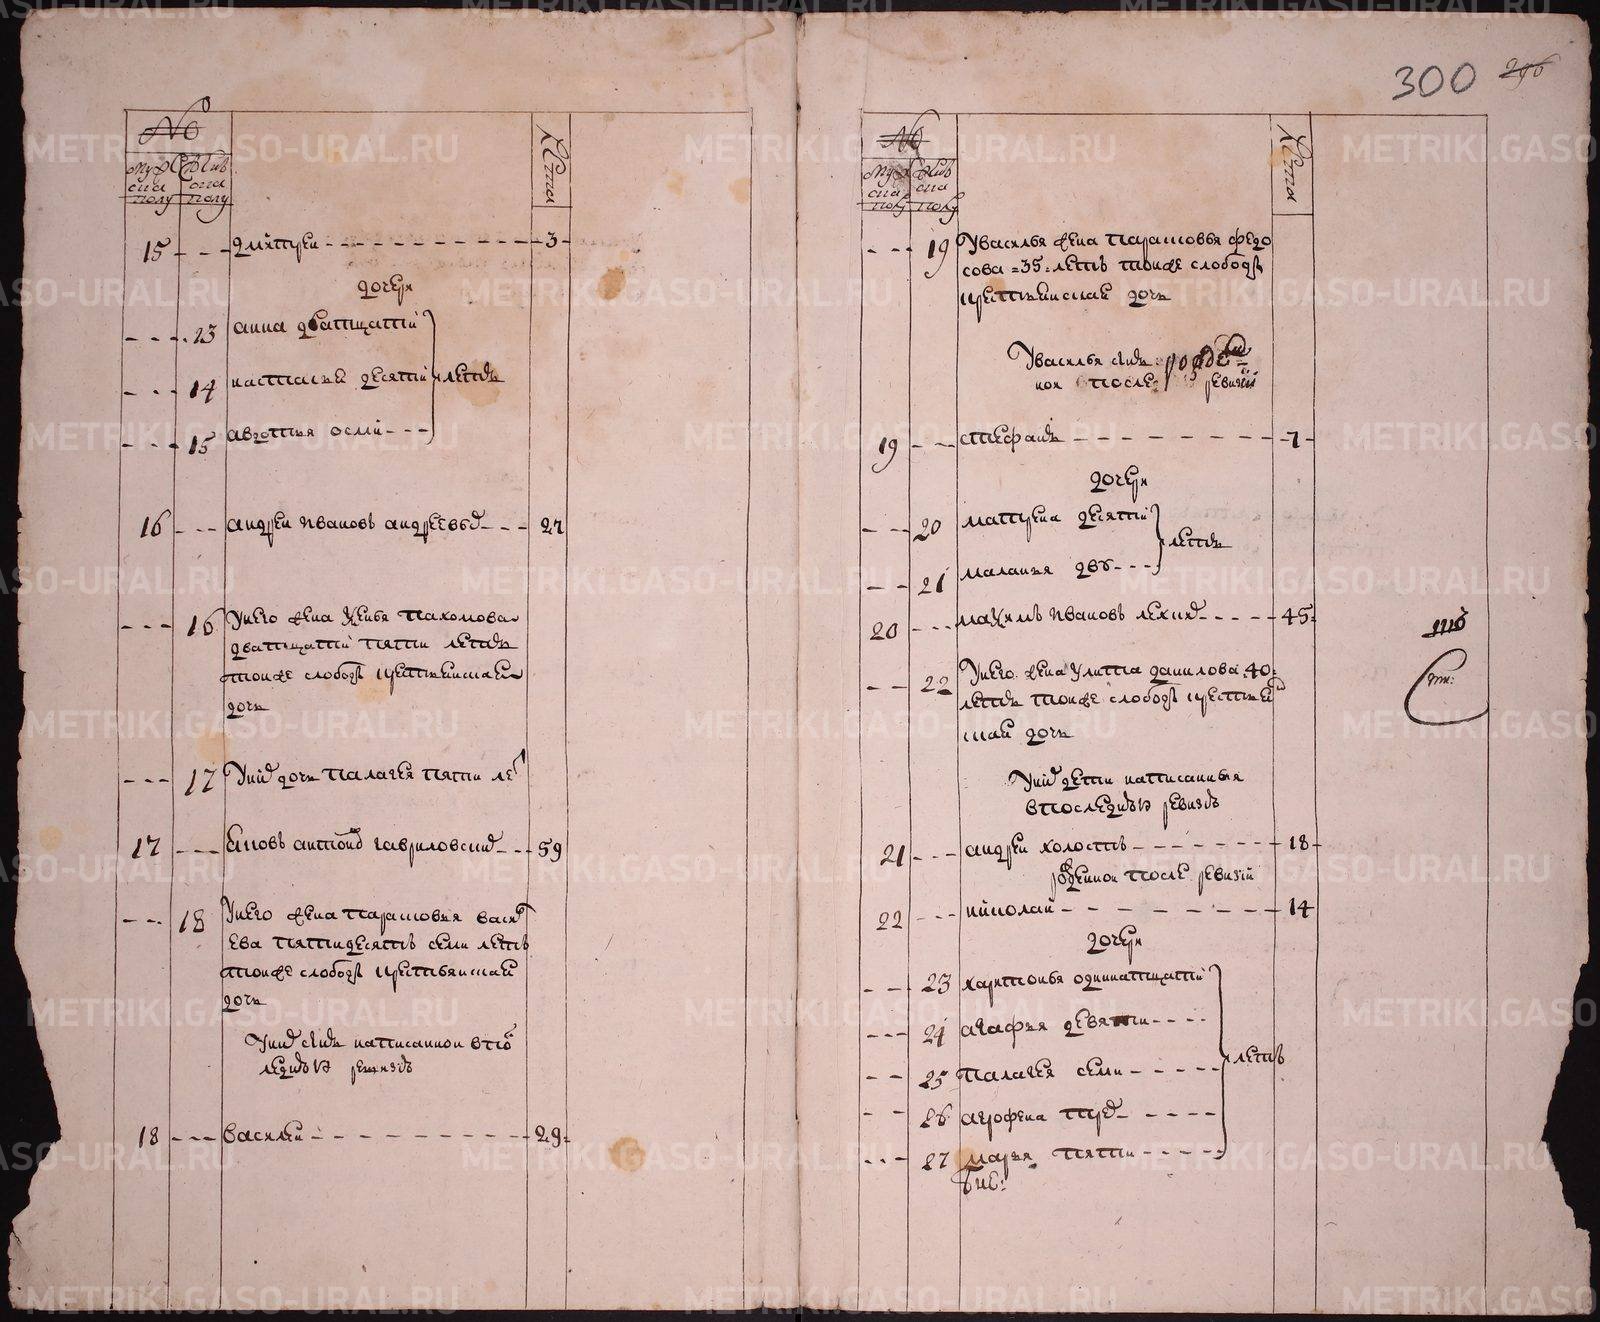 300 296
№
мужеска полу
женска полу
лета
15 - - - дмитреи - - - 3 -
дочери
- - - 23 анна дватцатй
- - - 14 настасья десяти летъ
- - - 15 авдотья осмй - - -
16 - - - андреи ивановъ андреевых - - - 27
- - - 16 У него жена Ксенья пахомова
дватцатй пяти летъ
тоиже слободы крестьянская
дочь
- - - 17 У них дочь палагея пяти лет
17 - - - антонъ гавриловских - - - 59
- - - 18 У него жена парасковья василь
ева пятидесятъ семи летъ
тоиже слободы крестьянскай
дочь
У них сынъ написаннои в пос
леднъи ревизъ
18 - - - василеи - - - 29 -
№
мужеска полу
женска полу
лета
- - - 19 У василья жена парасковья федо
сова = 35 = летъ тоиже слободы
крестьянская дочь
У василья сынъ рожден
нои после ревизий
19 - - - стефанъ - - - 7 -
дочери
- - - 20 матрена десяти
летъ
- - - 21 маланья двх - - -
20 - - - максимъ ивановъ - - - 45 -
- - - 22 У него жена Улита данилова 40
летъ тоиже слободы крестьян
скай дочь
У них дети написанныя
в последнъи ревизъ
21 - - - андреи холостъ - - - 18 -
рожденнои после ревизий
22 - - - николаи - - - 14
дочери
- - - 23 харитонья одиннатцатй
- - - 24 агафья девяти - - -
- - - 25 палагея семи - - - летъ
- - - 26 агрофена трех - - -
- - - 27 марья пяти - - -